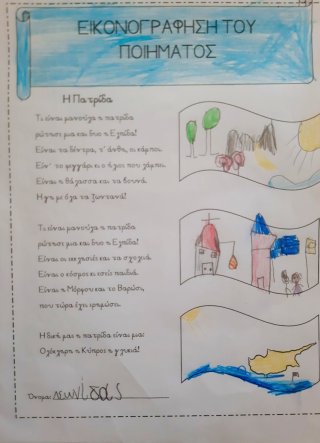 ΕΙΚΟΝΟΓΡΑΦΗΣΗ ΤΟΥ
ΠΟΙΗΜΑΤΟΣ
Η Πατρίδα
Τι είναι μανούλα η πατρίδα
ρώτησε μια και δυο η Ελπίδα!
Είναι τα δέντρα, τ' άνθη, οι κάμποι.
Είν' το φεγγάρι κι ο ήλιος που λάμπει.
Είναι η θάλασσα και τα βουνά.
Η γη με όλα τα ζωντανά!
Τι είναι μανούλα η πατρίδα
ρώτησε μια και δυο η Ελπίδα!
Είναι οι εκκλησιές και τα σχολειά.
Είναι ο κόσμος κι εσείς παιδιά.
Είναι η Μόρφου και το Βαρώσι,
που τώρα έχει ερημώσει.
Η δική μας η πατρίδα είναι μια:
Ολόκληρη η Κύπρος η γλυκιά!
Όνομα: Λεωνίδας